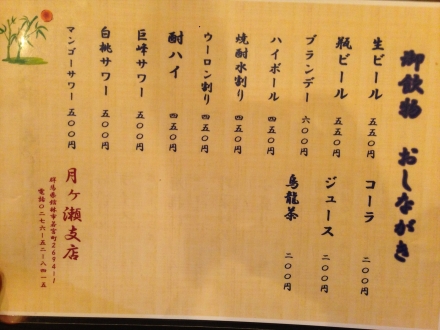 御飲物 おしながき
生ビール 五五〇円
瓶ビール 五五〇円
ブランデー 六〇〇円
ハイボール 四五〇円
焼酎水割り 四五〇円
ウーロン割り 四五〇円
酎ハイ 四五〇円
巨峰サワー 五〇〇円
白桃サワー 五〇〇円
マンゴーサワー 五〇〇円
コーラ 二〇〇円
ジュース 二〇〇円
烏龍茶 二〇〇円
月ヶ瀬支店
群馬県館林市若宮町2694-1
電話〇二七六-五二-八四一五